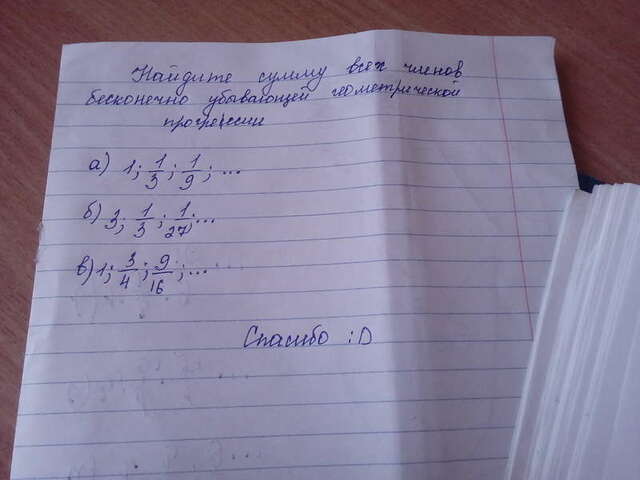 Найдите сумму всех членов
бесконечно убывающей геометрической
прогрессии
а) 1; 1/3; 1/9; ...
б) 3; 1/3; 1/27; ...
в) 1; 3/4; 9/16; ...
Спасибо :D